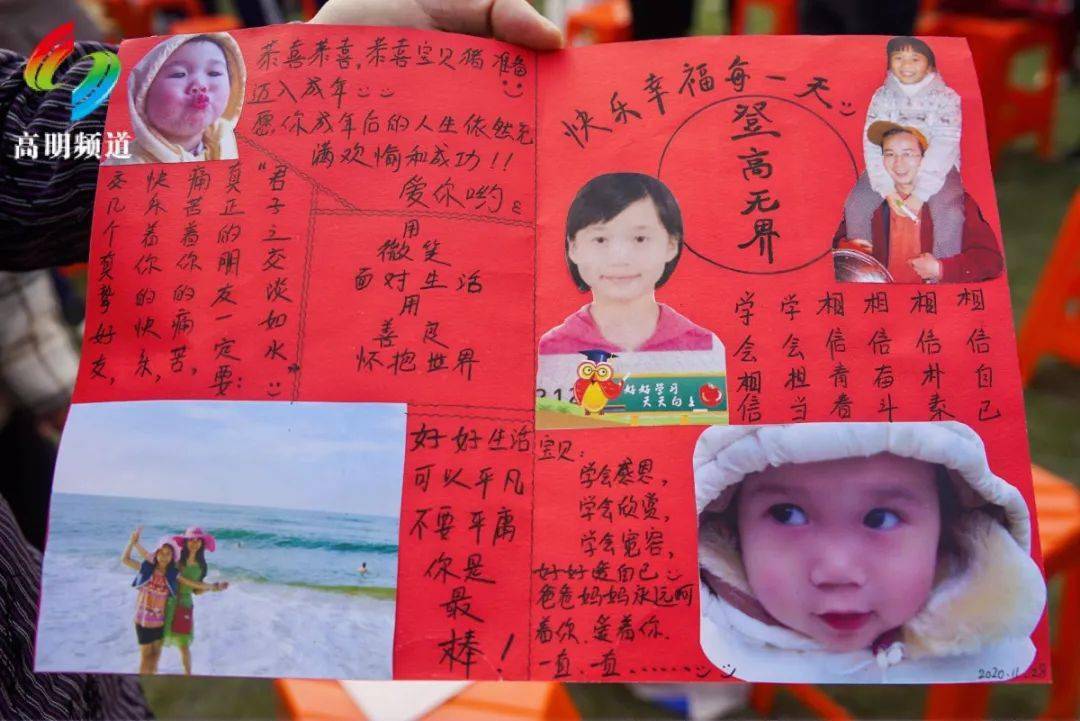 高明频道
恭喜恭喜,恭喜宝贝猪准备
迈入成年
愿你成年后的人生依然充
满欢愉和成功!!
爱你哟。
“君子之交淡如水”
真正的朋友一定要:
痛苦着你的痛苦,
快乐着你的快乐,
交几个真挚好友,
用
微笑
面对生活
用
善良
怀抱世界
好好生活
可以平凡
不要平庸
你是
最
棒!
快乐幸福每一天
登高无界
好好学习
天天向上
相信自己
相信朴素
相信奋斗
相信青春
学会担当
学会相信
宝贝:
学会感恩,
学会欣赏,
学会宽容,
好好爱自己
爸爸妈妈永远呵
着你、爱着你.
一直一直.......
2020.11.28